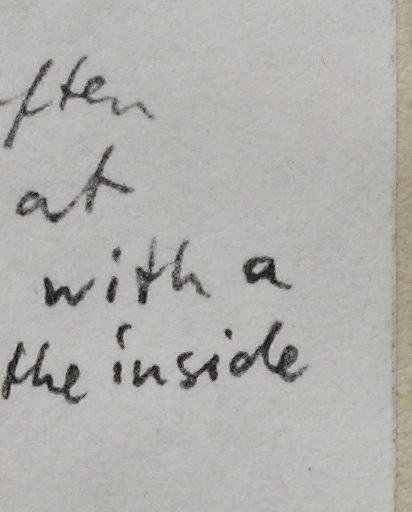 ften
at
with a
the inside